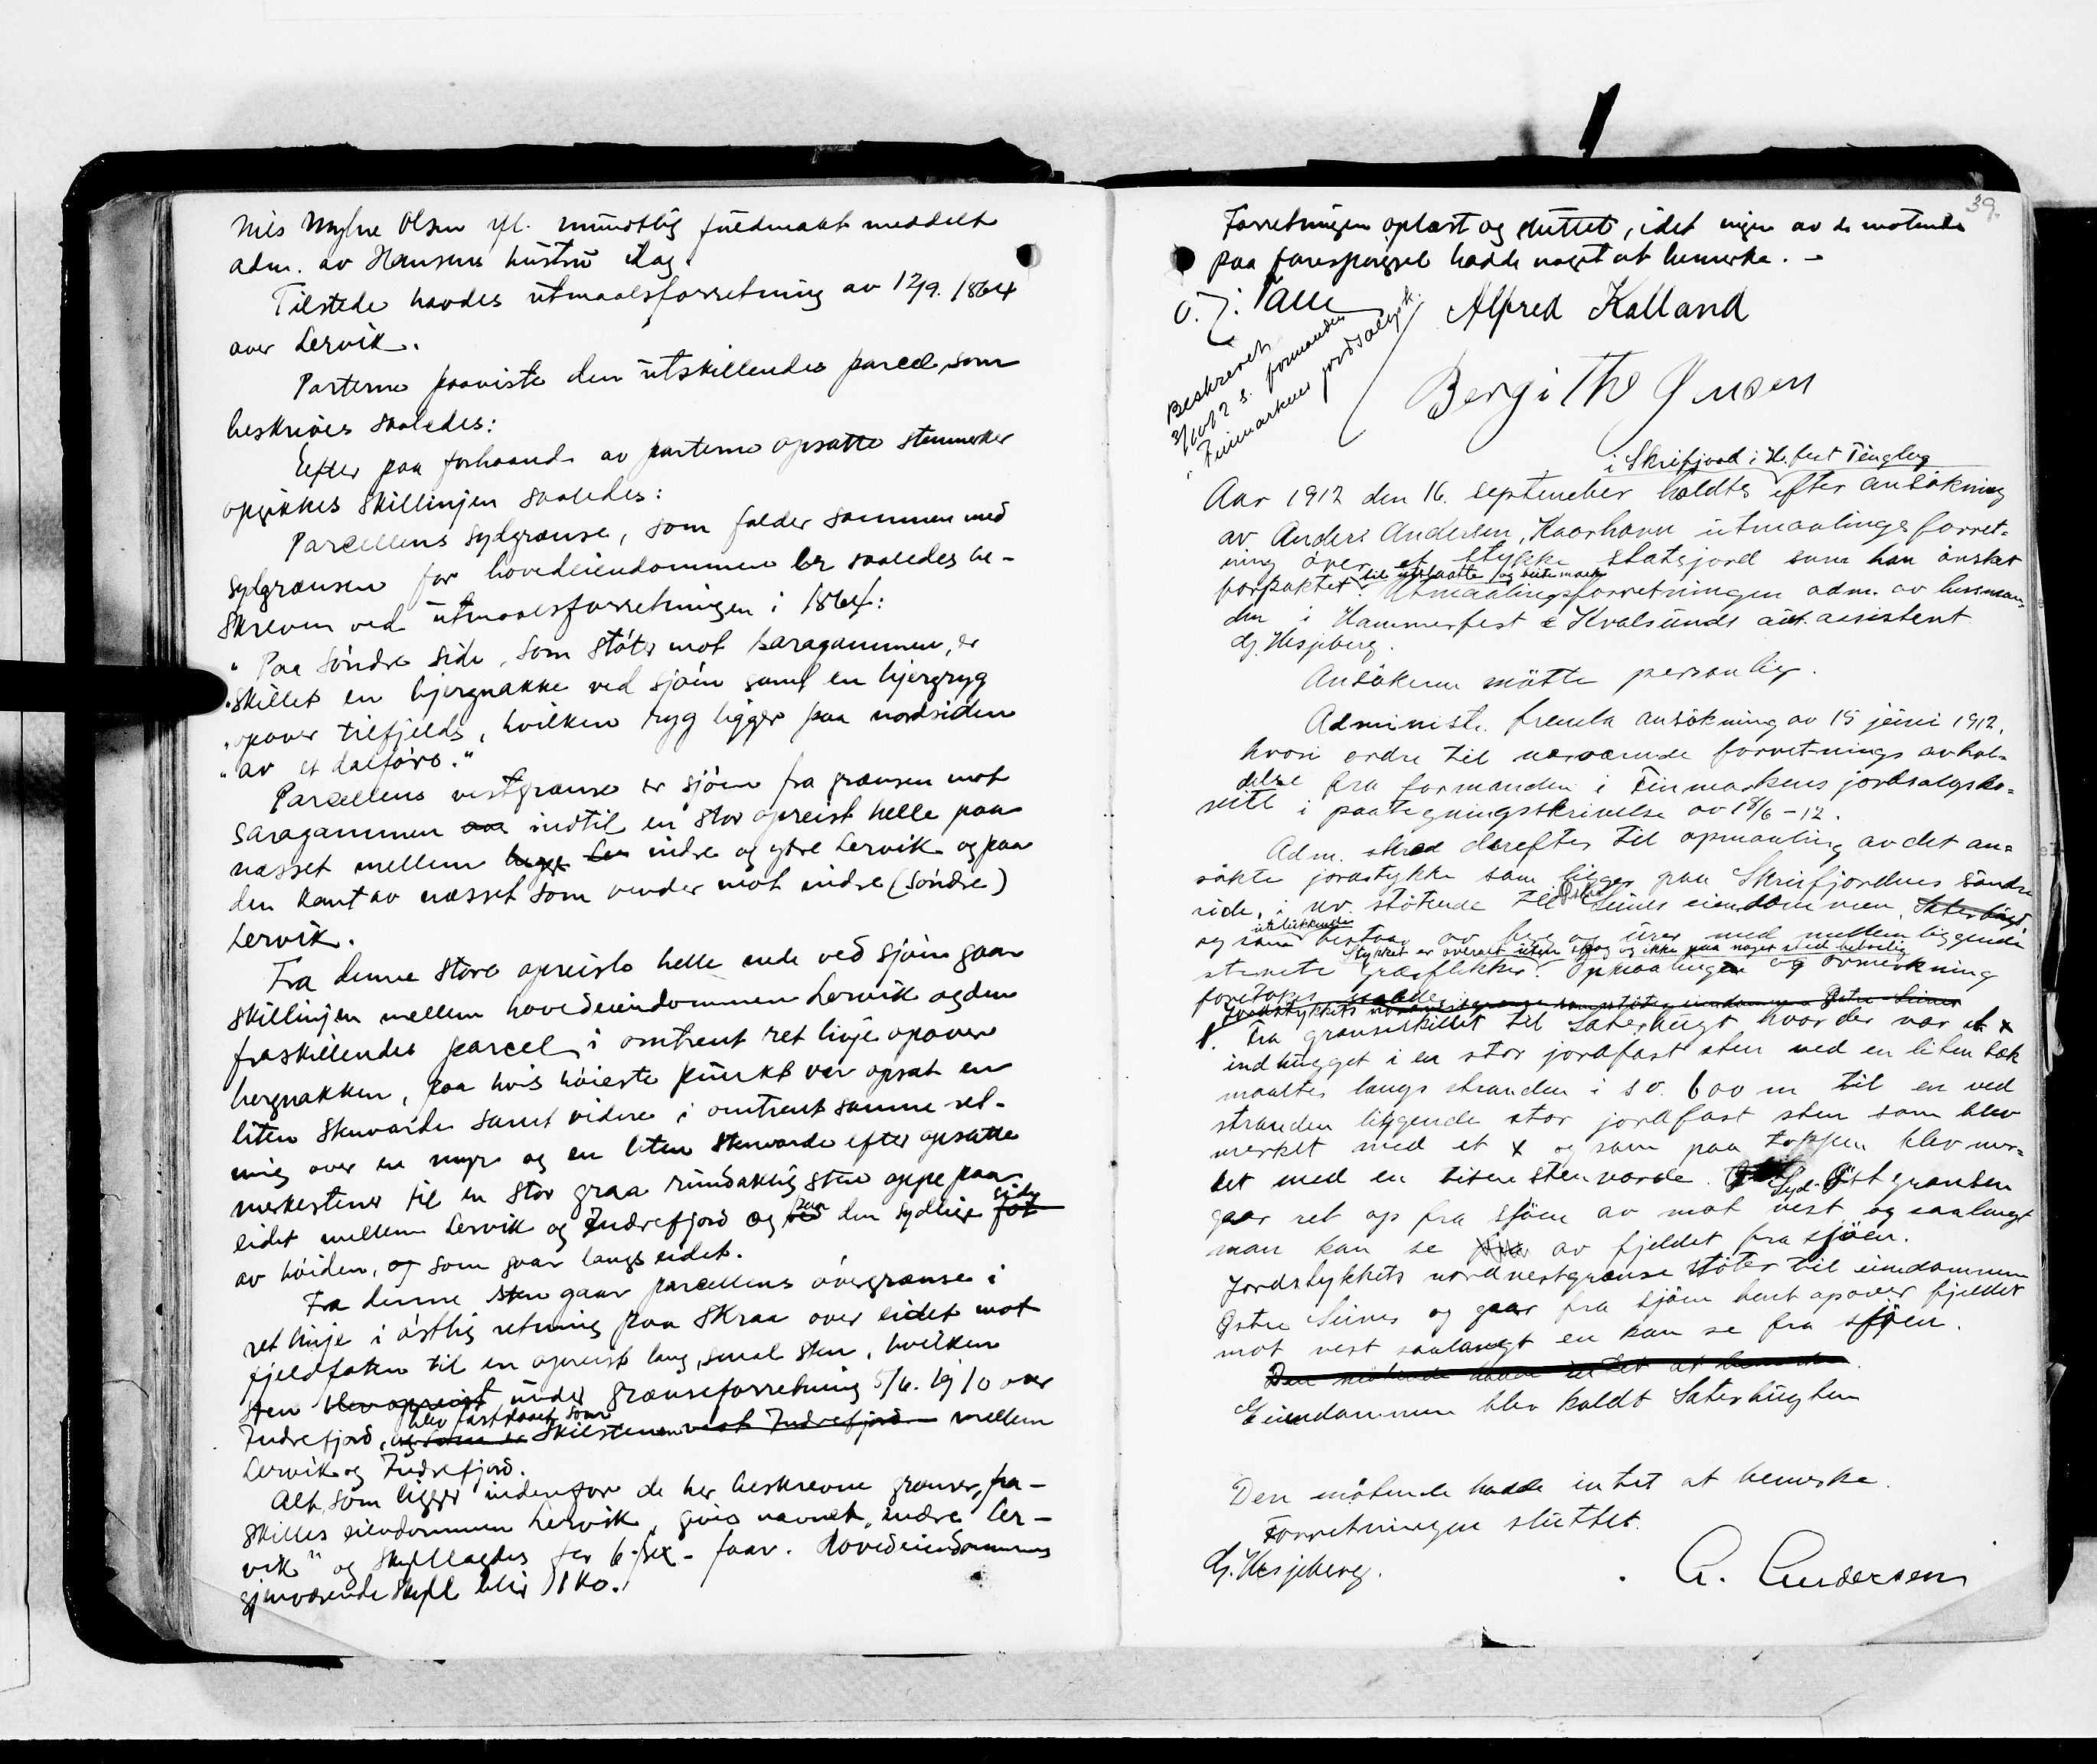 Nils Myhre Olsen ifl. mundtlig fuldmakt meddelt
adm. av Hansens hustru idag.
Tilstede havdes utmaalsforretning av 12/9. 1864
over Lervik.
Parterne paaviste den utskillendes parcel, som
beskrives saaledes:
Efter paa forhaand av parterne opsatte stenmerker
opgikkes skillinjen saaledes:
Parcellens sydgrænse, som falder sammen med
sydgrænsen for hovedeiendommen er saaledes be-
skreven ved utmaalsforretningen i 1864:
" Paa søndre side, som støter mot Saragammen, er
" skillet en bjergnakke ved sjøen samt en bjergryg
" opover tilfjelds, hvilken ryg ligger paa nordsiden
" av et dalføre."
Parcellens vestgrænse er sjøen fra grænsen mot
Saragammen indtil en stor opreist helle paa
næsset mellem indre og ytre Lervik og paa
den kant av næsset som vender mot indre (søndre)
Lervik.
Fra denne store opreiste helle nede ved sjøen gaar
skillinjen mellem hovedeiendommen Lervik og den
fraskillendes parcel i omtrent ret linje opover
bergnakken, paa hvis høieste punkt var opsat en
liten stenvarde samt videre i omtrent samme ret-
ning over en myr og en liten stenvarde efter opsatte
merkestener til en stor graa rundaktig sten oppe paa
eidet mellem Lervik og Indrefjord og paa den sydlige side
av høiden, og som gaar langs eidet.
Fra denne sten gaar parcellens øvergrænse i
ret linje i østlig retning paa skraa over eidet mot
fjeldfoten til en opreist lang, smal sten, hvilken
sten blev opreist under grænseforretning 5/6. 1910 over
Indrefjord, blev fastslaaet som skilstenen mot Indrefjord mellem
Lervik og Indrefjord.
Alt, som ligger indenfor de her beskrevne grænser, fra-
skilles eiendommen Lervik, gives navnet "indre Ler-
vik" og skyldlagdes for 6 - sex - faar. Hovedeiendommens
gjenværende skyld blir 1 ko.
39.
Forretningen oplæst og sluttet, idet ingen av de møtende
paa forespørgsel hadde noget at bemerke. -
O. J. Palle Alfred Kalland
Beskrevet
3/10 12 s. formanden
i Finmarkens jordsalgsk.
Bergithe Olsen
i Skreifjord i H.fest Tinglag
Aar 1912 den 16. september holdtes efter ansøkning
av Anders Andersen, Kaarhavn utmaalingsforret-
ning over et stykke statsjord som han ønsket
forpaktet til utslaatte og beitemark. Utmaalingsforretningen adm. av lensman-
den i Hammerfest & Kvalsunds aut. assistent
Hj. Hesjeberg.
Ansøkeren møtte personlig.
Administr. fremla ansøkning av 15 juni 1912,
hvori ordre til nærværende forretnings avhol-
delse fra formanden i Finmarkens jordsalgsko-
mité i paategningsskrivelse av 18/6 - 12.
Adm. skred derefter til opmaaling av det an-
søkte jordstykke som ligger paa Skreifjordens søndre
side, i nv. støtende til Østre Seines eiendommen,
og som udelukkende bestaar av berg og urer med mellemliggende
Stykket er overalt uten skog og ikke paa noget sted beboelig
stenete græsflekker. Opmaalingen og avmerkning
foretokes saaledes
Jordstykkets nordvestgrænse som støter til eiendommen Østre Seines
1. Fra grænseskillet til Saterbugt hvor der var et x
indhugget i en stor jordfast sten ved en liten bæk
maaltes langs stranden i sv. 600 m til en ved
stranden liggende stor jordfast sten som blev
merket med et x og som paa toppen blev mer-
ket med en liten stenvarde. Syd-Østgrænsen
gaar ret op fra sjøen av mot vest og saalangt
man kan se av fjeldet fra sjøen.
Jordstykkets nordvestgrænse støter til eiendommen
Østre Seines og gaar fra sjøen bent opover fjeldet
mot vest saalangt en kan se fra sjøen.
Den møtende hadde intet at bemerke.
Eiendommen blev kaldt Saterbugten
Den møtende hadde intet at bemerke.
Forretningen sluttet.
Hj. Hesjeberg. A. Andersen